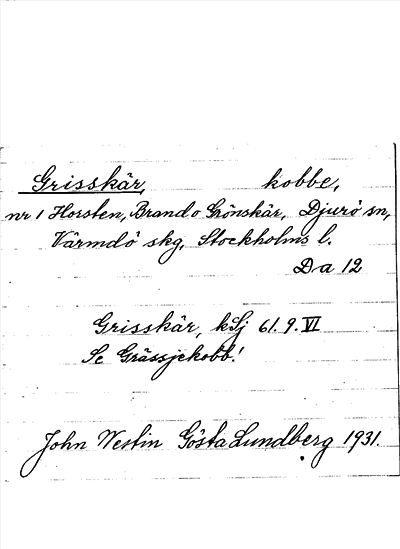 Grisskär, kobbe,
nr 1 Horsten, Brand o Grönskär, Djurö sn,
Värmdö skg, Stockholms l.
Da 12
Grisskär, kSj 61.9.VI
Se Grässjekobb!
John Westin Gösta Lundberg 1931.